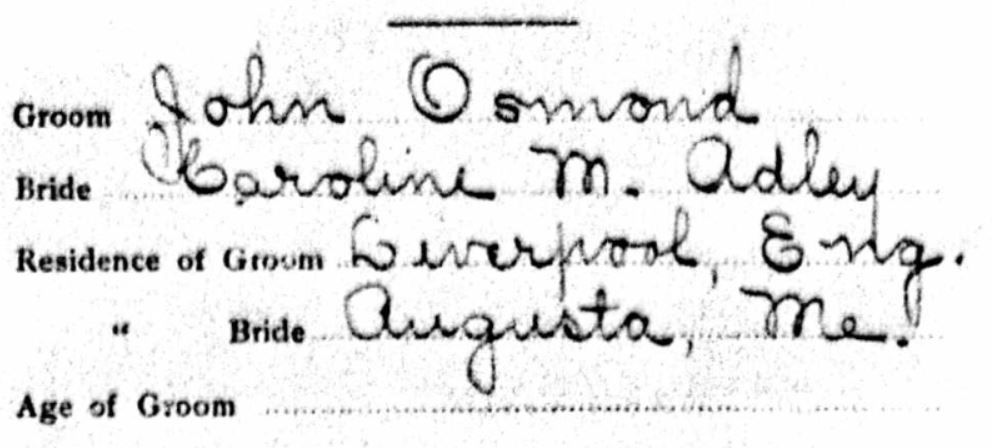 Groom John Osmond
Bride Caroline M. Adley
Residence of Groom Liverpool, Eng.
" Bride Augusta, Me.
Age of Groom